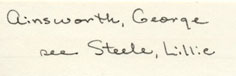 Ainsworth, George
see Steele, Lillie